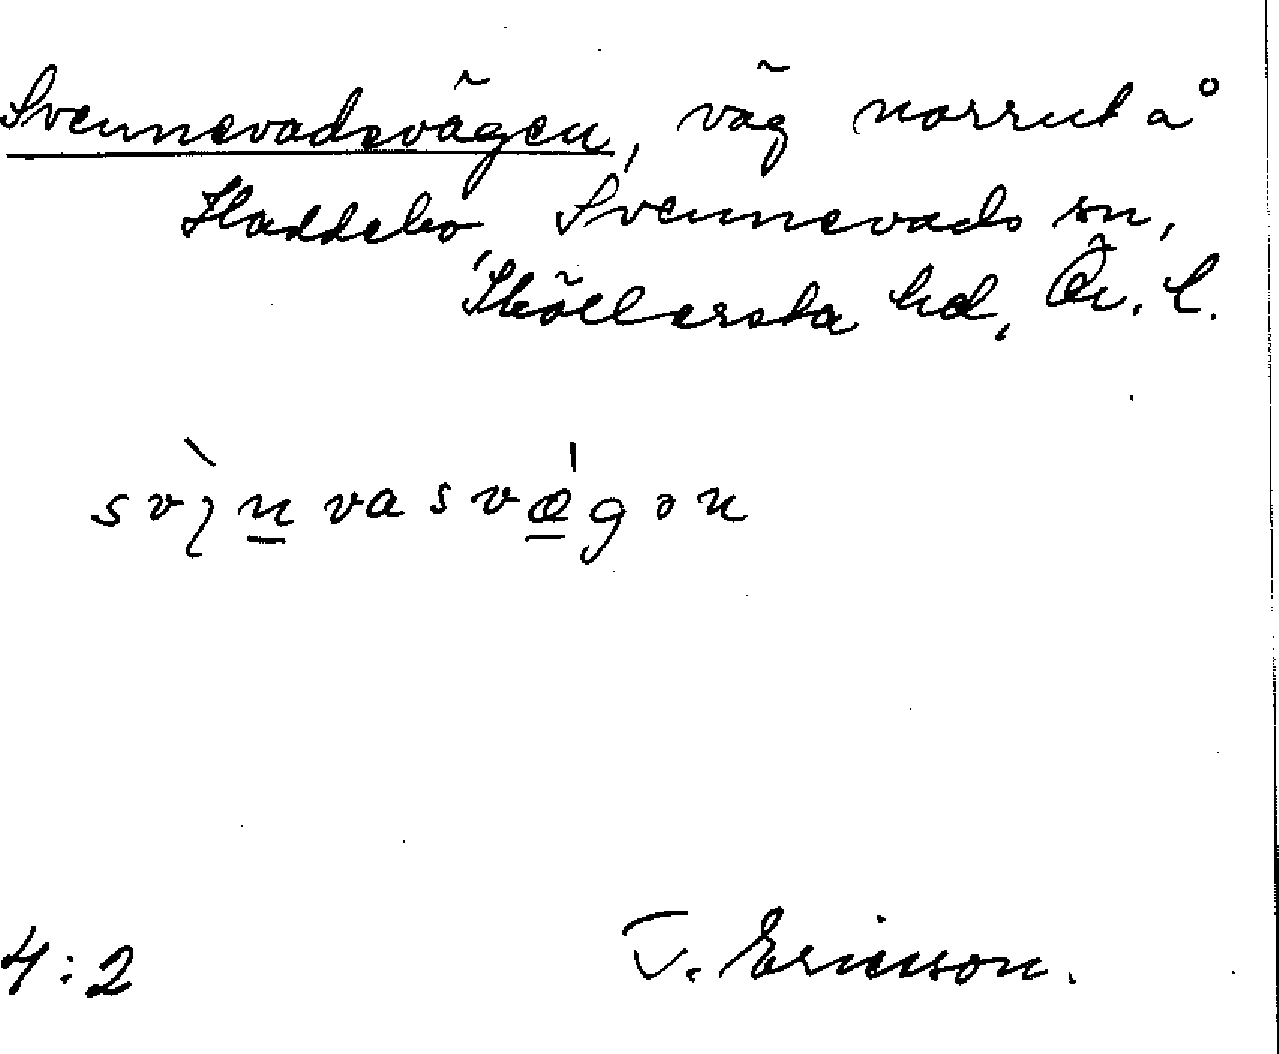 Svennevadsvägen, väg norrut å
Haddebo, Svennevads sn,
Sköllersta hd, Ör. l.
4:2 T. Ericsson.